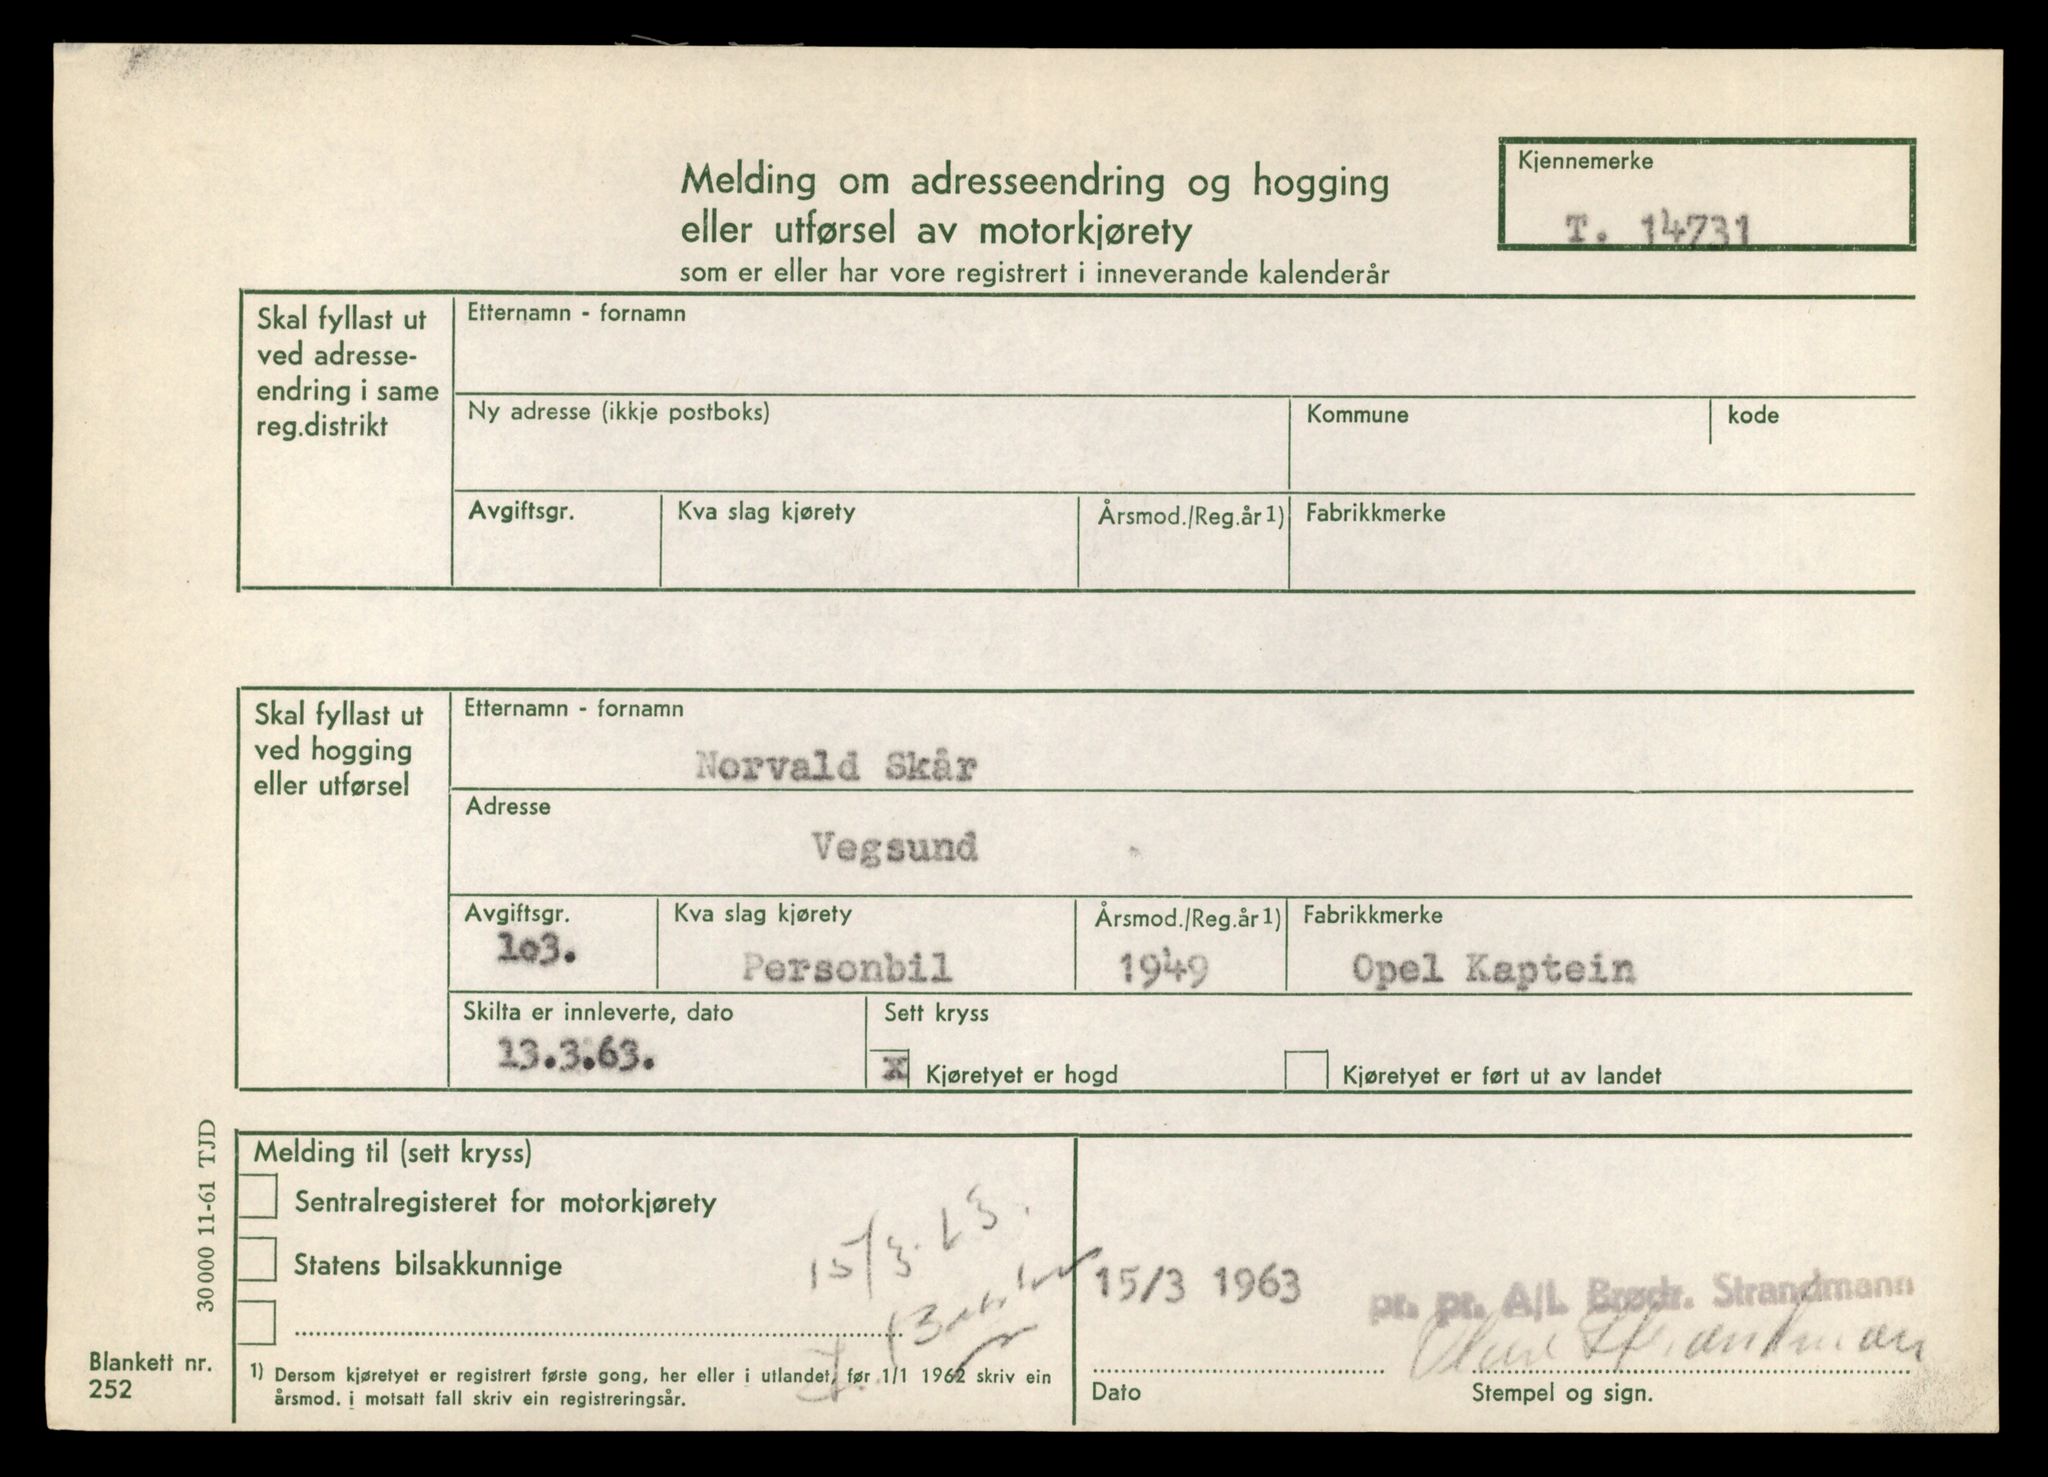 Melding om adresseendring og hogging
eller utførsel av motorkjørety
som er eller har vore registrert i inneverande kalenderår
Kjennemerke
T. 14731
Skal fyllast ut
ved adresse-
endring i same
reg.distrikt
Etternamn - fornamn
Ny adresse (ikkje postboks)
Kommune
kode
Avgiftsgr.
Kva slag kjørety
Årsmod./Reg.år 1)
Fabrikkmerke
Skal fyllast ut
ved hogging
eller utførsel
Etternamn - fornamn
Norvald Skår
Adresse
Vegsund
Avgiftsgr.
1o3.
Kva slag kjørety
Personbil
Årsmod./Reg.år 1)
1949
Fabrikkmerke
Opel Kaptein
Skilta er innleverte, dato
13.3.63.
Sett kryss
X Kjøretyet er hogd
Kjøretyet er ført ut av landet
Melding til (sett kryss)
Sentralregisteret for motorkjørety
Statens bilsakkunnige
15/3.63.
1) Dersom kjøretyet er registrert første gong, her eller i utlandet, før 1/1 1962 skriv ein
årsmod. i motsatt fall skriv ein registreringsår.
15/3 1963
Dato
pr. pr. A/L Brødr. Strandmann
Strandmann
Stempel og sign.
30000 11-61 TJD
Blankett nr.
252